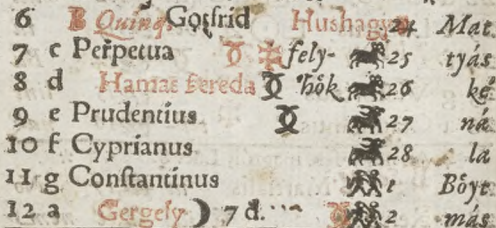 6 B Quinq. Gotfrid Hushagyo 24 Mat.
7 c Perpetua fely- 25 tyás
8 d Hamas szereda hők 26 ké
9 e Prudentius 27 ná
10 f Cyprianus 28 la
11 g Constantinus 1 Bőyt.
12 a Gergely 7 d. 2 más